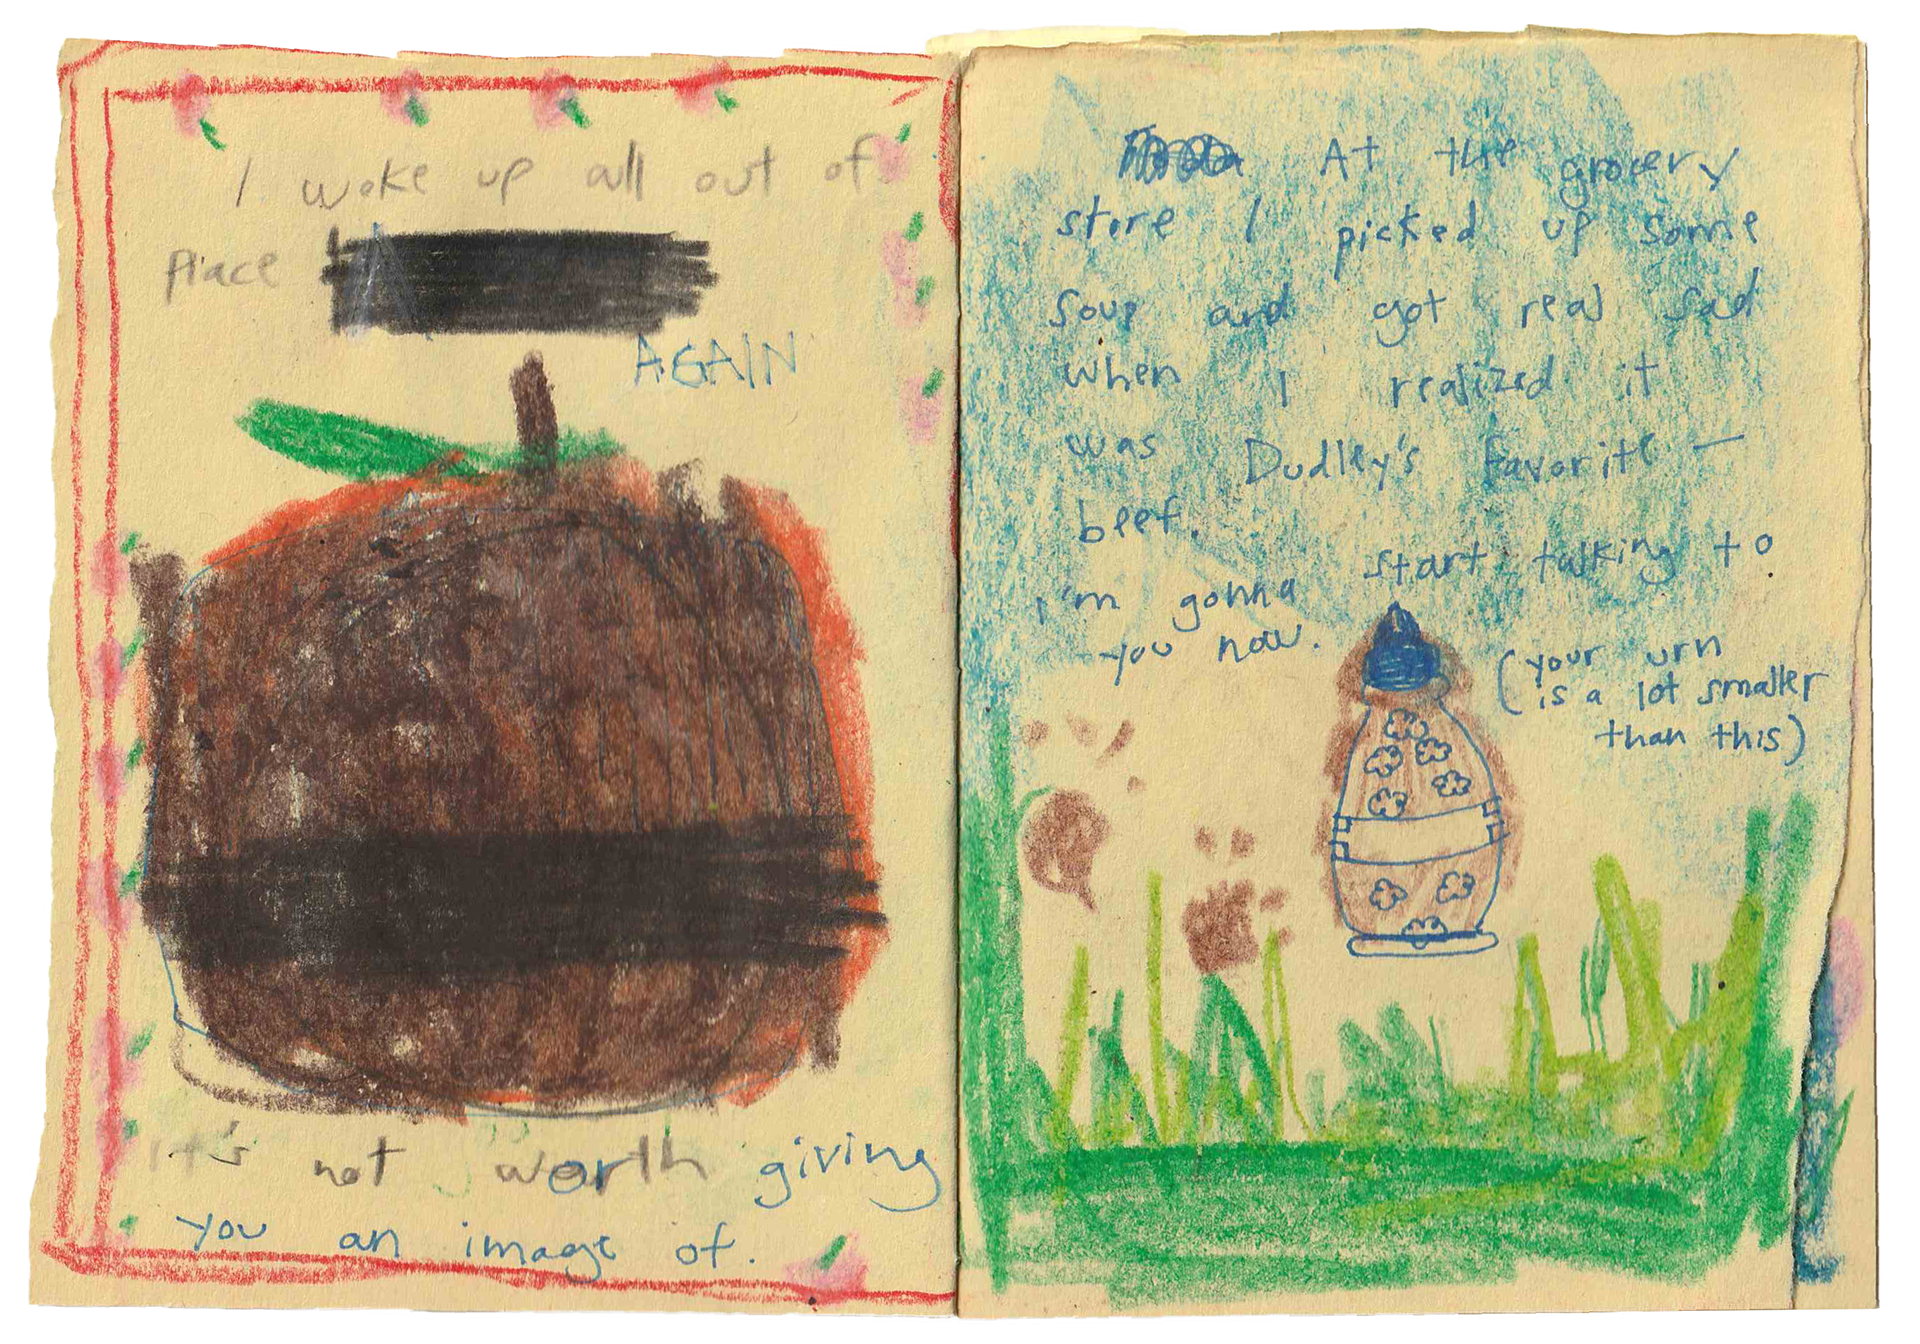 I woke up all out of
place
AGAIN
It's not worth giving
you an image of.
At the grocery
store I picked up some
soup and got real sad
when I realized it
was Dudley's favorite —
beef.
I'm gonna start talking to
you now.
(your urn
is a lot smaller
than this)